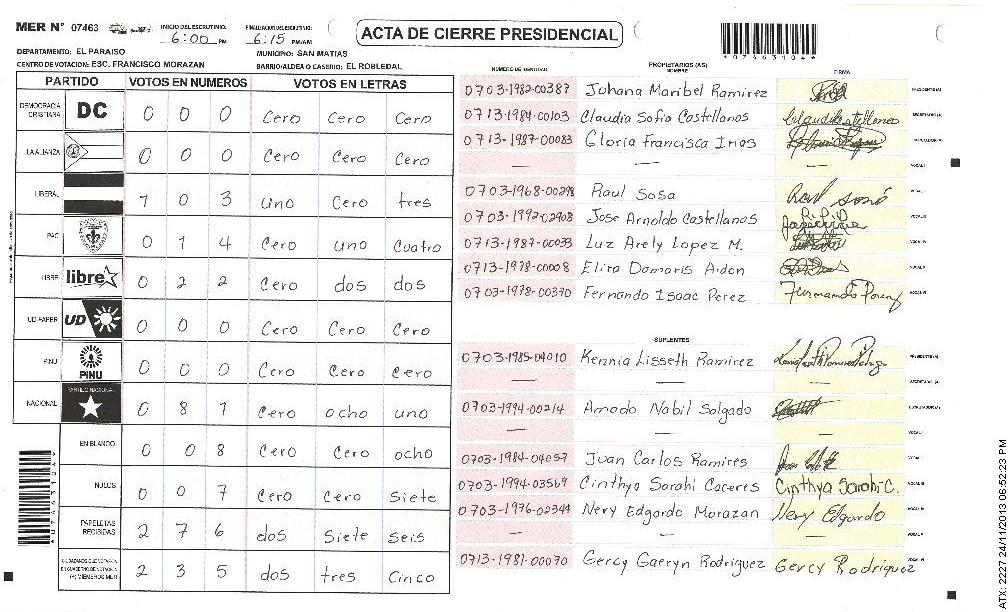 MER N° 07463
INICIO DEL ESCRUTINIO: 6:00 PM
FINALIZACION DEL ESCRUTINIO: 6:15 PM/AM
ACTA DE CIERRE PRESIDENCIAL
*07463104*
DEPARTAMENTO: EL PARAISO
MUNICIPIO: SAN MATIAS
CENTRO DE VOTACION: ESC. FRANCISCO MORAZAN
BARRIO/ALDEA O CASERIO: EL ROBLEDAL
PARTIDO VOTOS EN NUMEROS VOTOS EN LETRAS
DEMOCRACIA CRISTIANA DC 0 0 0 Cero Cero Cero
LA ALIANZA 0 0 0 Cero Cero Cero
LIBERAL 1 0 3 uno Cero tres
PAC 0 1 4 Cero uno Cuatro
LIBRE libre 0 2 2 Cero dos dos
UD-FAPER UD 0 0 0 Cero Cero Cero
PINU PINU 0 0 0 Cero Cero Cero
NACIONAL PARTIDO NACIONAL 0 8 1 Cero ocho uno
EN BLANCO 0 0 8 Cero Cero ocho
NULOS 0 0 7 Cero Cero Siete
PAPELETAS RECIBIDAS 2 7 6 dos Siete seis
2 3 5 dos tres Cinco
NUMERO DE IDENTIDAD PROPIETARIOS (AS) NOMBRE FIRMA
0703-1982-00387 Johana Maribel Ramirez PRESIDENTE(A)
0713-1984-00103 Claudia Sofia Castellanos SECRETARIO(A)
0713-1987-00083 Gloria Francisca Irias ESCRUTADOR(A)
— — — VOCAL I
0703-1968-00298 Raul Sosa VOCAL II
0703-1992-02908 Jose Arnoldo Castellanos VOCAL III
0713-1987-00033 Luz Arely Lopez M. VOCAL IV
0713-1978-00008 VOCAL V
0703-1978-00370 Fernando Isaac Perez VOCAL VI
SUPLENTES
0703-1985-04010 Kennia Lisseth Ramirez PRESIDENTE(A)
— — SECRETARIO (A)
0703-1994-00214 Amado Nabil Salgado ESCRUTADOR(A)
— — VOCAL I
0703-1984-04057 Juan Carlos Ramires VOCAL II
0703-1994-03569 Cinthya Sarahi Caceres Cinthya Sarahi C. VOCAL III
0703-1976-02344 Nery Edgardo Morazan Nery Edgardo VOCAL IV
— — VOCAL V
0713-1981-00070 Gercy Gaeryn Rodriguez Gercy Rodriguez VOCAL VI
*07463104*
ATX: 2227 24/11/2013 06:52:23 PM